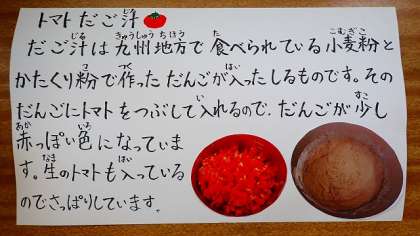 トマトだご汁
だご汁は九州地方で食べられている小麦粉と
かたくり粉で作っただんごが入ったしるものです。その
だんごにトマトをつぶして入れるので、だんごが少し
赤っぽい色になっていま
す。生のトマトも入っている
のでさっぱりしています。